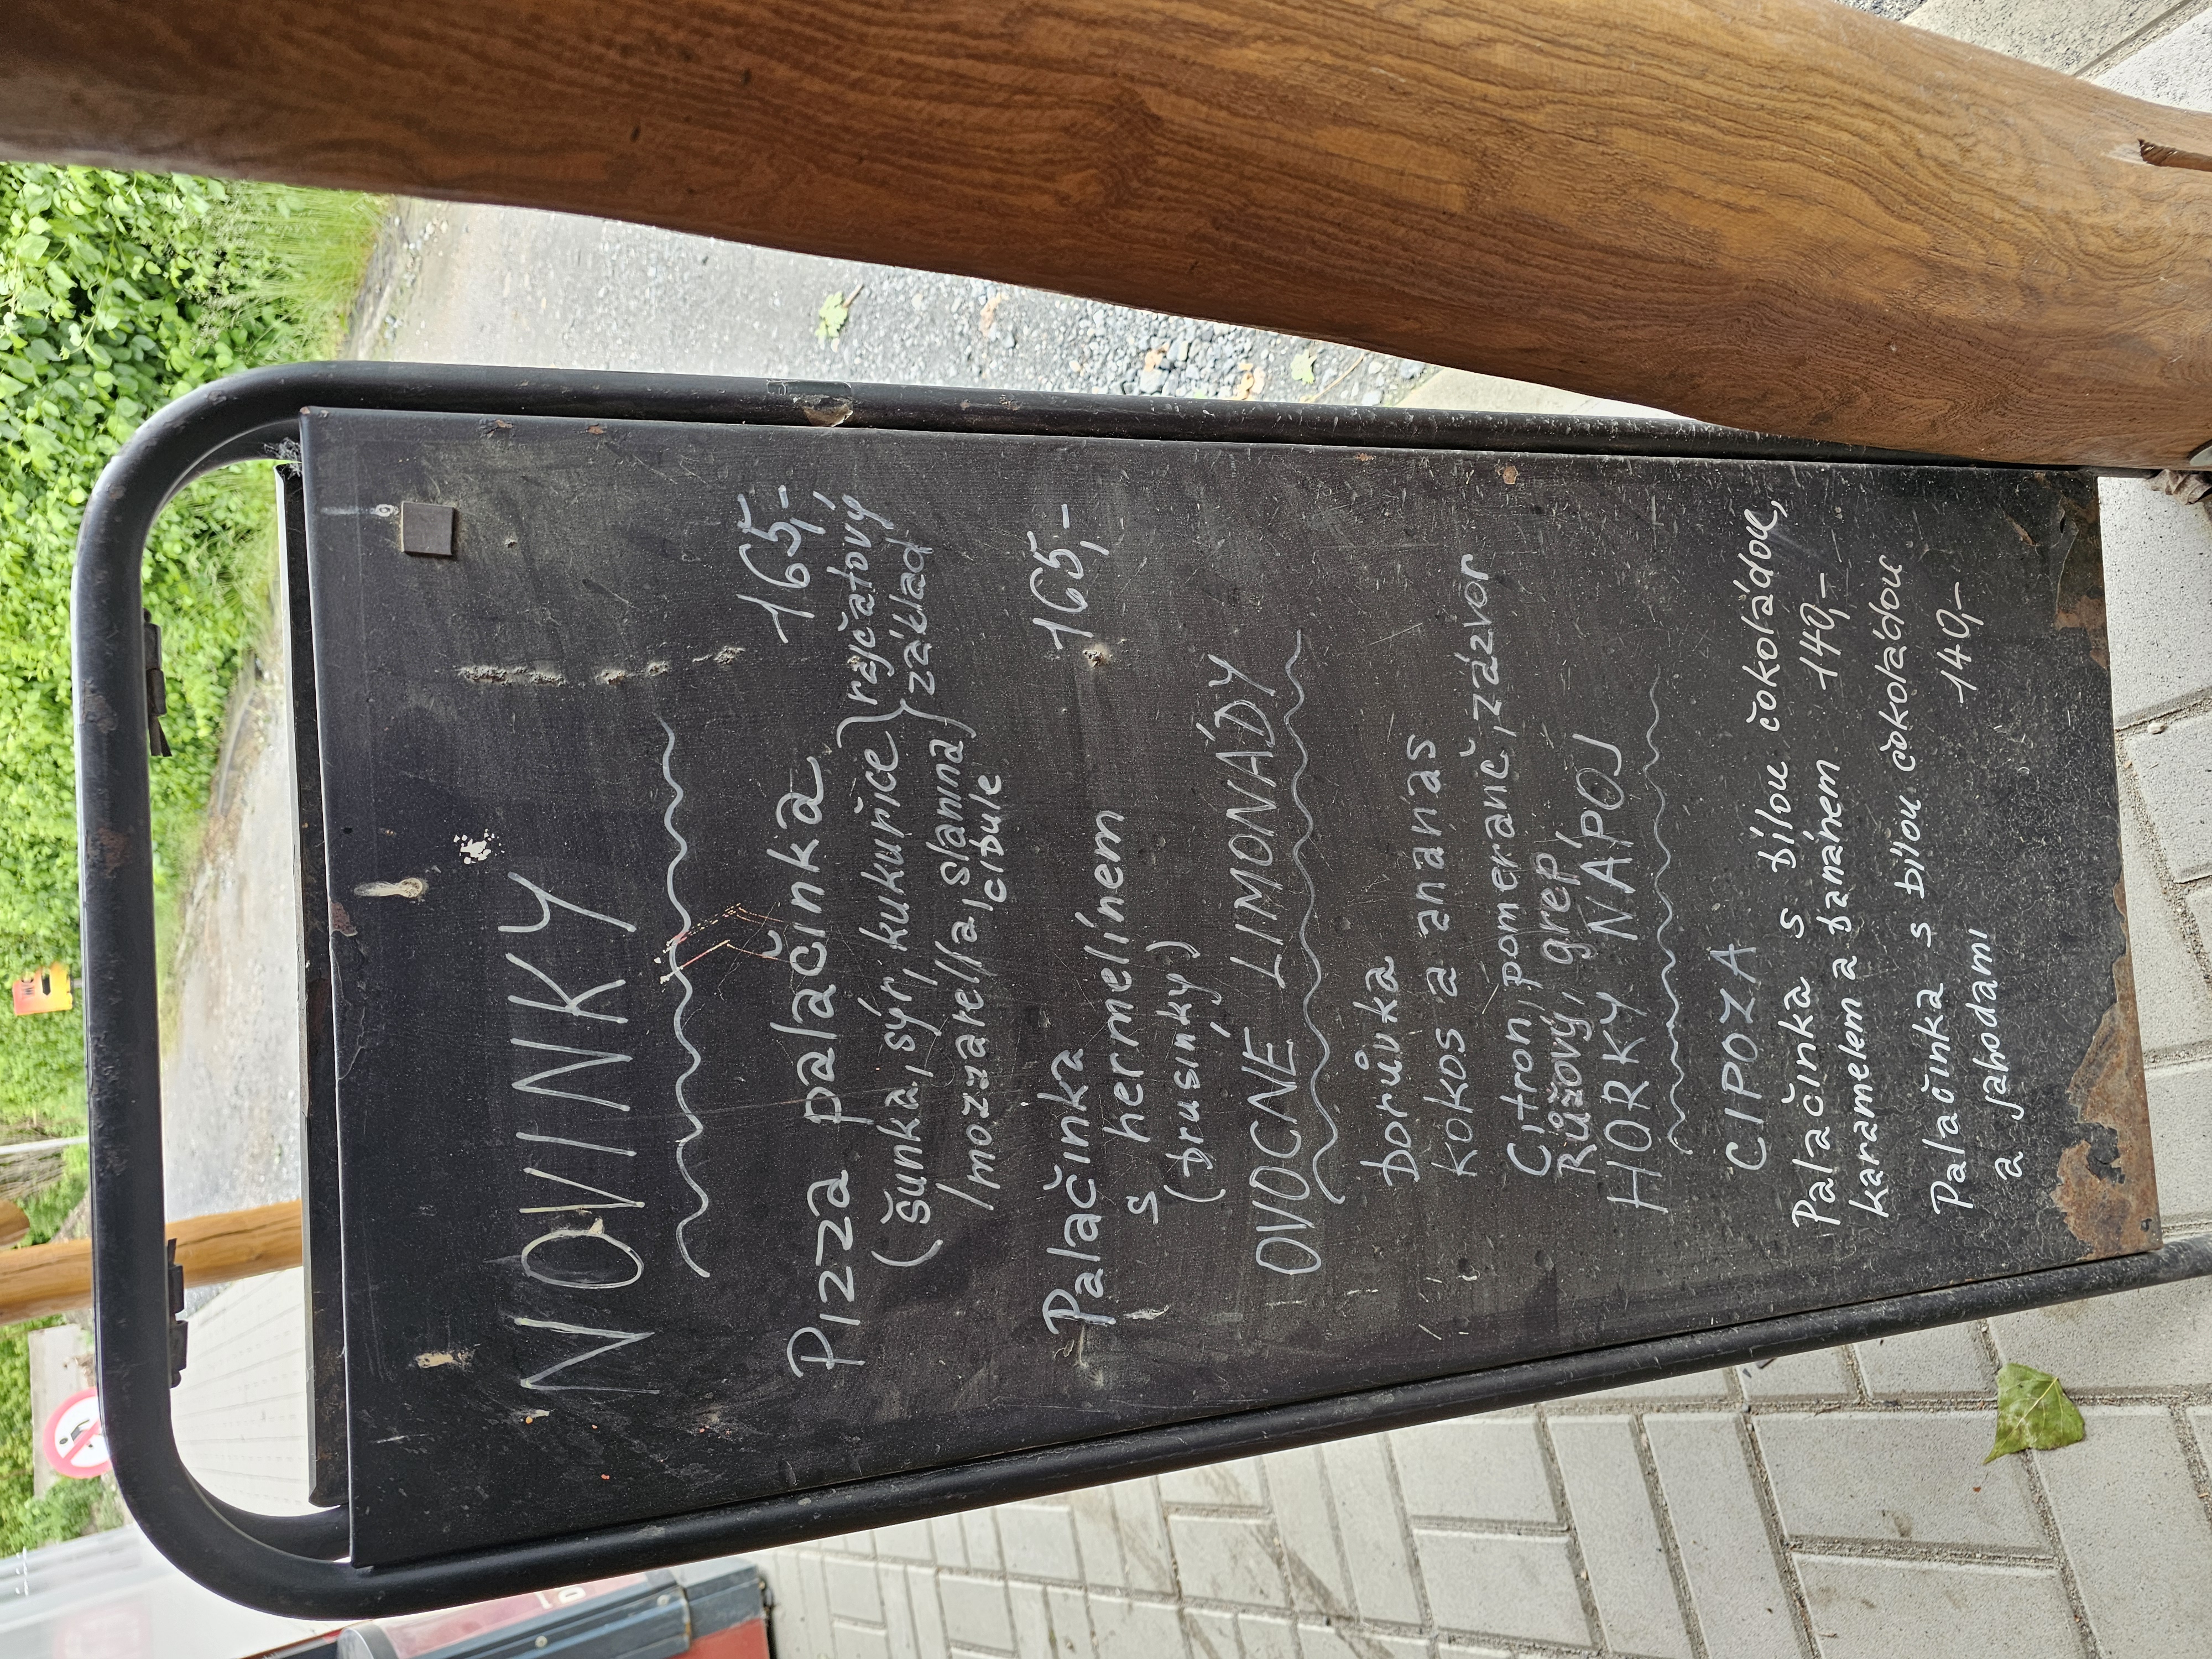 NOVINKY
Pizza palačinka 165,-
(šunka, sýr, kukuřice) rajčatový
/mozzarella, slanina/ základ
cibule
Palačinka
s hermelínem 165,-
(brusinky)
OVOCNÉ LIMONÁDY
borůvka
kokos a ananas
Citron, pomeranč, zázvor
Růžový, grep,
HORKÝ NÁPOJ
CIPOZA
Palačinka s bílou čokoládou,
karamelem a banánem 140,-
Palačinka s bílou čokoládou
a jahodami 140,-